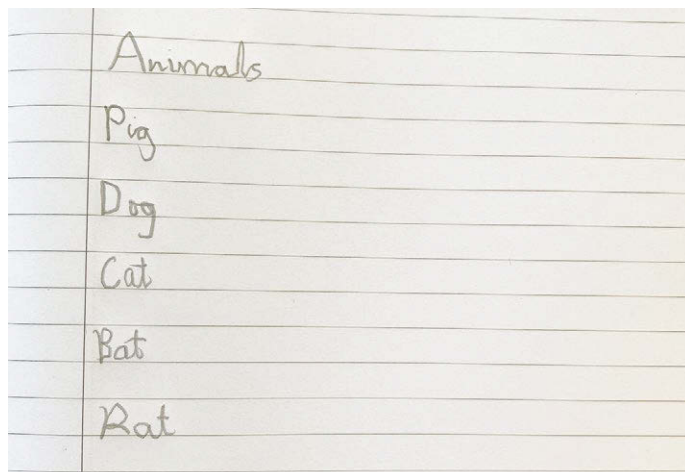 Animals
Pig
Dog
Cat
Bat
Rat